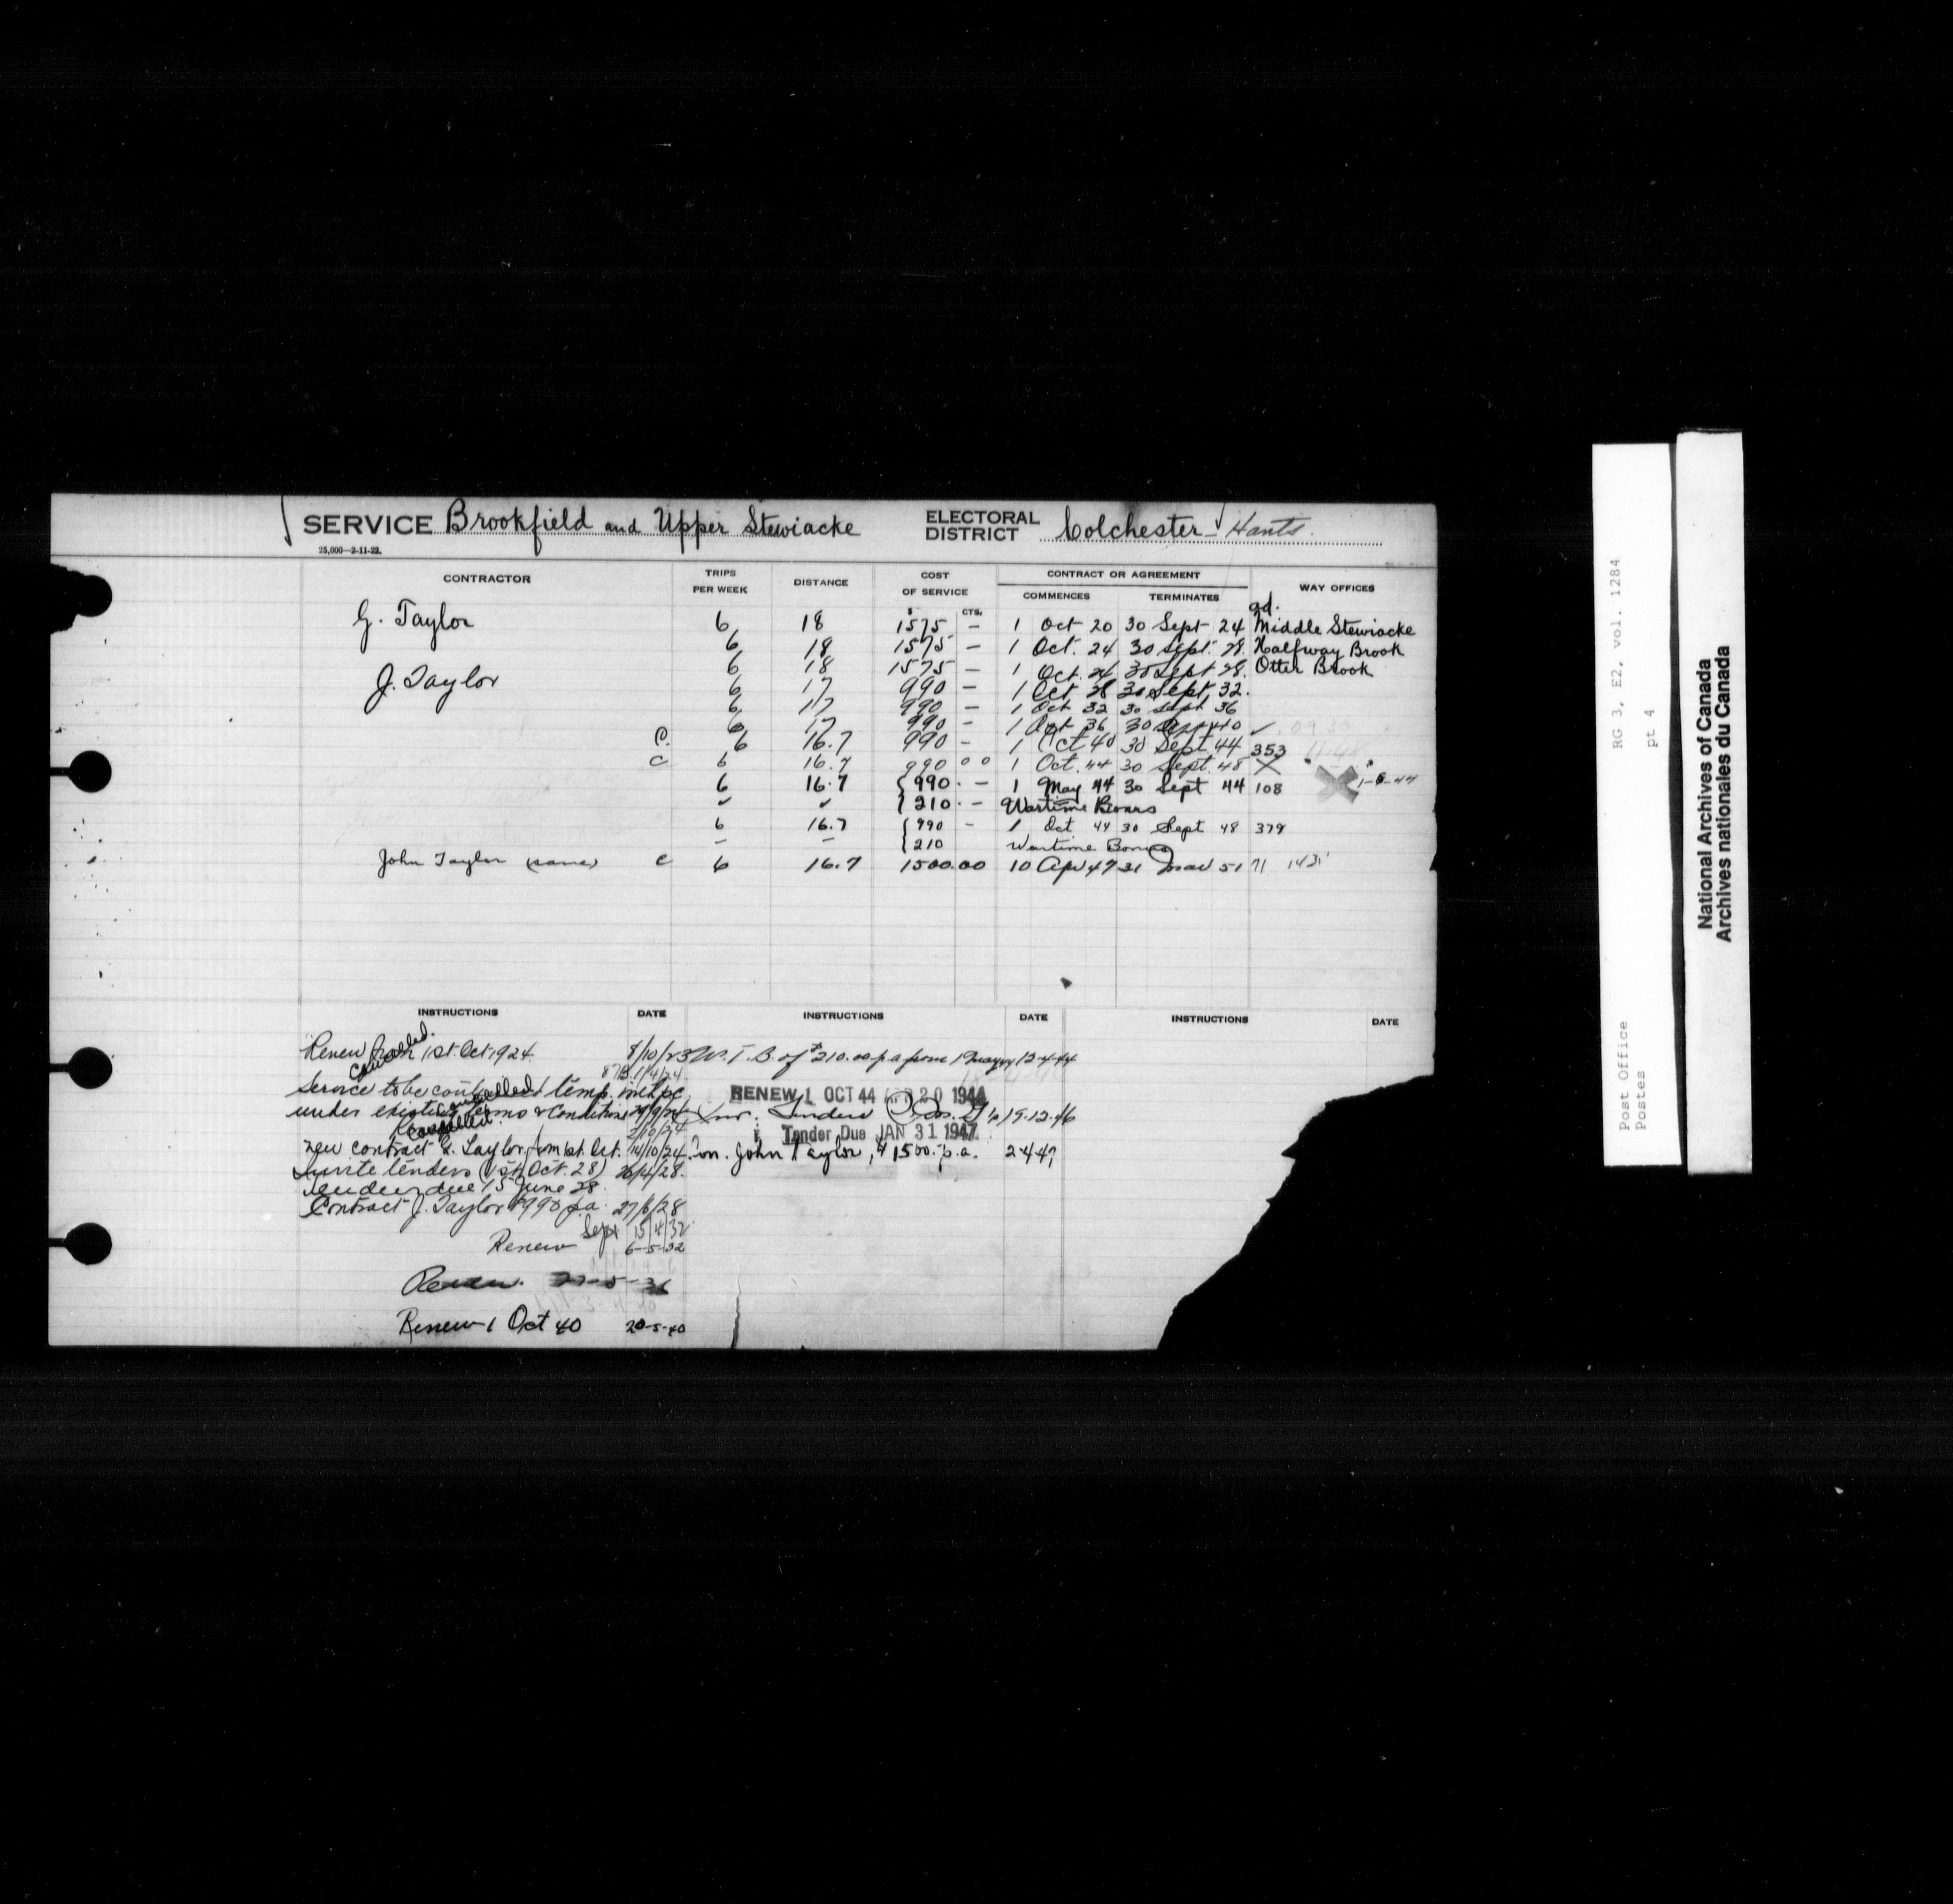 SERVICE Brookfield and Upper Stewiacke ELECTORAL DISTRICT Colchester - Hants.
25,000—2-11-22.
CONTRACTOR TRIPS PER WEEK DISTANCE COST OF SERVICE CONTRACT OR AGREEMENT WAY OFFICES
$ CTS. COMMENCES TERMINATES
G. Taylor 6 18 1575 — 1 Oct 20 30 Sept 24 Middle Stewiacke
6 18 1575 — 1 Oct. 24 30 Sept. 28 Halfway Brook
6 18 1575 — 1 Oct. 24 30 Sept 28. Otter Brook
J. Taylor 6 17 990 — 1 Oct 28 30 Sept. 32.
6 17 990 — 1 Oct 32 30 Sept 36
6 17 990 - 1 Oct 36 30 Sept 40
C. 6 16.7 990 - 1 Oct 40 30 Sept 44 353
C 6 16.7 990 00 1 Oct. 44 30 Sept. 48
6 16.7 { 990. — 1 May 44 30 Sept 44 108 1-6-44
{ 210. — Wartime Bonus
6 16.7 { 990 — 1 Oct 44 30 Sept 48 379
— — { 210 Wartime Bonus
John Taylor (same) C 6 16.7 1500.00 10 Apr 47 31 Mar 51 71 1431
INSTRUCTIONS DATE INSTRUCTIONS DATE INSTRUCTIONS DATE
Renew from 1st. Oct. 1924. 8/10/23
Cancelled.
1/4/24
Service to be continued temp. with pc
under existing terms & conditions 29/9/24
Cancelled
2/10/24
New contract G. Taylor from 1st. Oct. 14/10/24
Invite tenders (1st Oct. 28) 26/4/28.
Tender due 15 June 28.
Contract J. Taylor $990 p.a. 27/6/28
Sept 15/4/32
Renew 6-5-32
Renew. 27-5-36
Renew 1 Oct 40 20-5-40
W. T. B. of $210.00 p.a from 1 May 44 12-4-44
RENEW 1 OCT 44 20 1944
Inv. Tenders 19-12-46
Tender Due JAN 31 1947
Con. John Taylor, $1500.- p.a. 2-4-47
Post Office RG 3, E2, vol. 1284
Postes pt 4
National Archives of Canada
Archives nationales du Canada